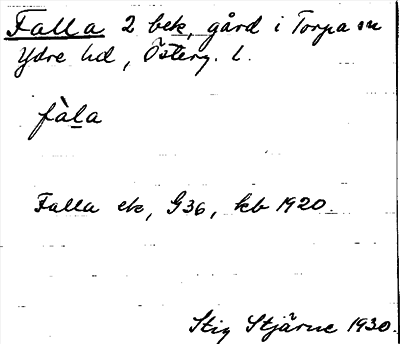 Falla 2 bek, gård i Torpa sn
Ydre hd, Österg. l.
fàla
Falla ek, G36, kb 1920.
Stig Stjärne 1930.